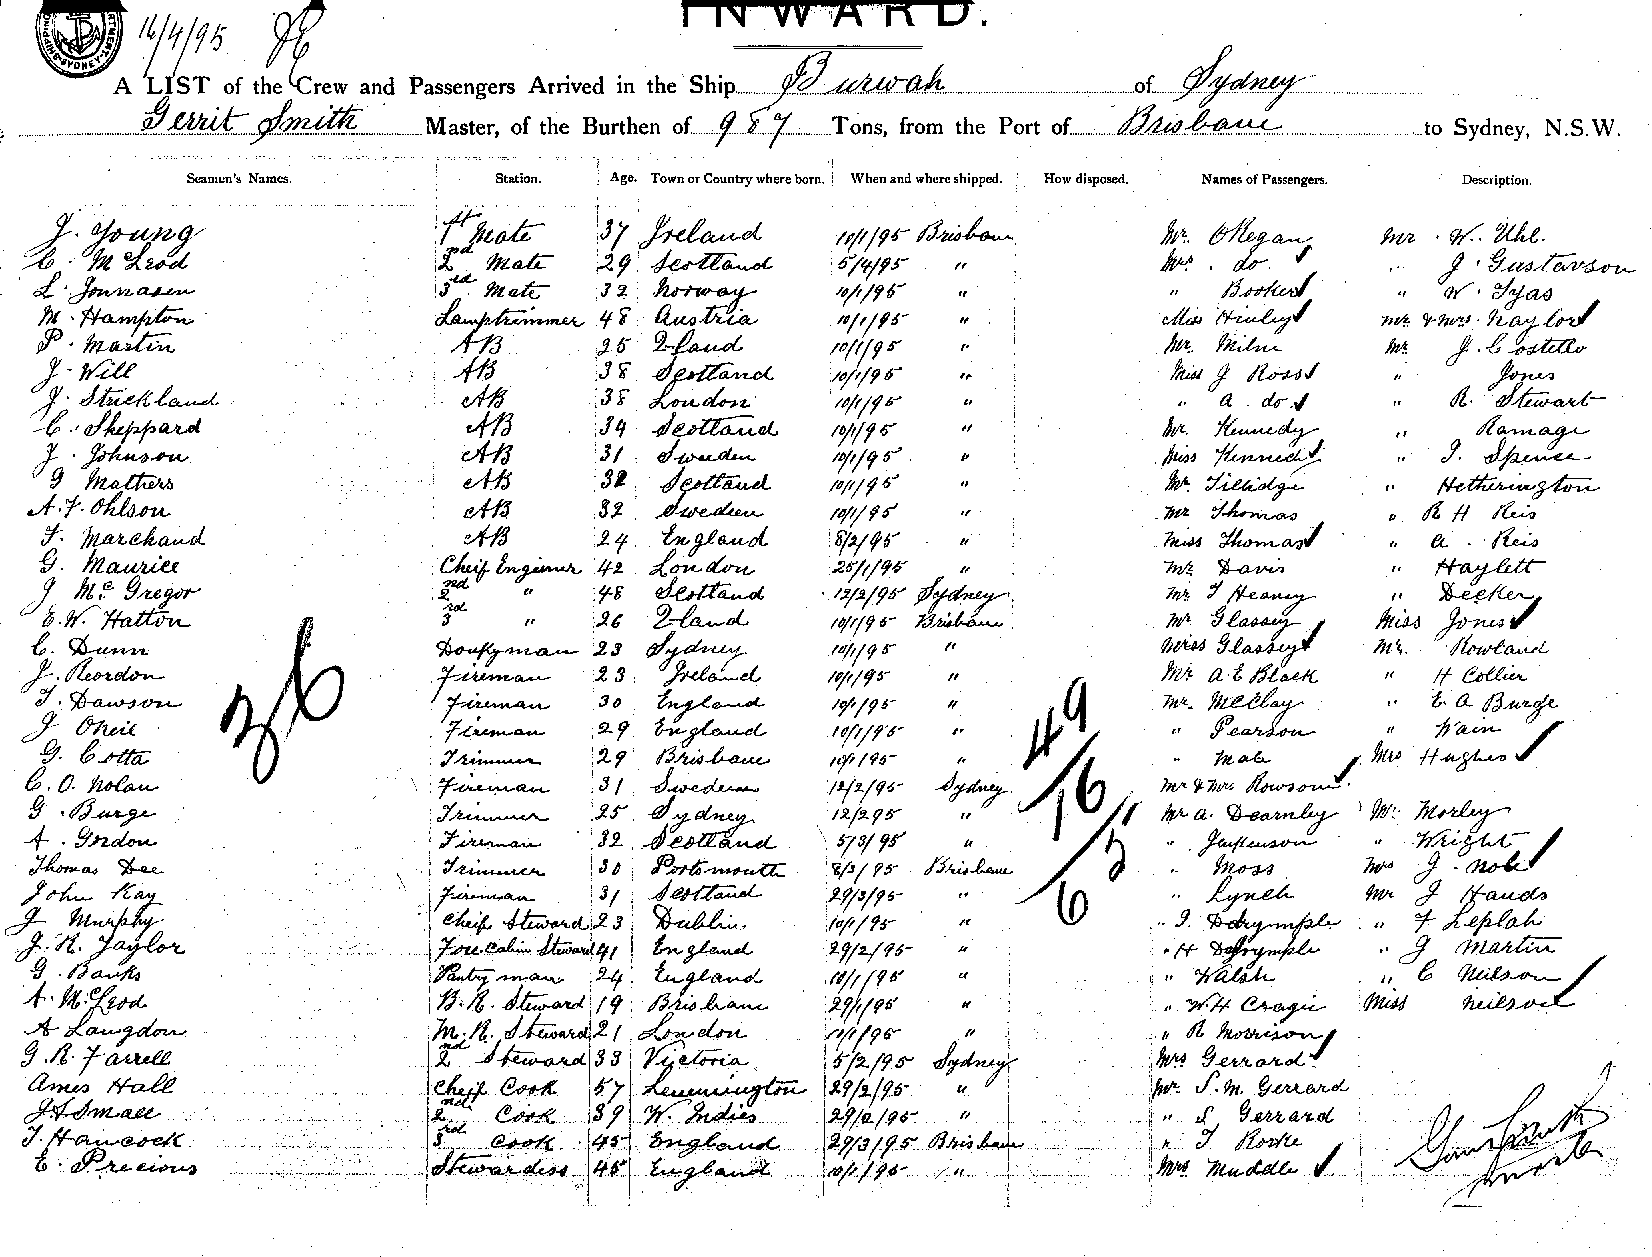 16/4/95
INWARD.
A LIST of the Crew and Passengers Arrived in the Ship Burwah of Sydney
Gerrit Smith Master, of the Burthen of 987 Tons, from the Port of Brisbane to Sydney, N.S.W.
Seamen's Names. Station. Age. Town or Country where born. When and where shipped. How disposed. Names of Passengers. Description.
J. Young 1st Mate 37 Ireland 10/1/95 Brisbane Mr. OKegan Mr. W. Uhl.
C. McLeod 2nd Mate 29 Scotland 5/4/95 " Mrs. do. " J. Gustavson
L. Jonnasen 3rd Mate 32 Norway 10/1/95 " " Booker " W. Tyas
M. Hampton Lamptrimmer 48 Austria 10/1/95 " Miss Henley Mr & Mrs. Naylor
P. Martin AB 25 Qland 10/1/95 " Mr. Milne Mr J. Costello
J. Will AB 38 Scotland 10/1/95 " Miss J Ross " Jones
J. Strickland AB 38 London 10/1/95 " " A. do. " R. Stewart
C. Sheppard AB 34 Scotland 10/1/95 " Mr. Kennedy " Ramage
J. Johnson AB 31 Sweeden 10/1/95 " Miss Kennedy " T. Spense
G Mathers AB 32 Scotland 10/1/95 " Mr. Tillidge " Hetherington
A. F. Ohlson AB 32 Swedien 10/1/95 " Mr Thomas " R H Reis
F. Marchand AB 24 England 8/2/95 " Miss Thomas " A. Reis
G. Maurice Cheif Engineer 42 London 25/1/95 " Mr Davis " Haylett
J McGregor 2nd " 48 Scotland 12/2/95 Sydney Mr T Heaney " Decker
E. W. Hatton 3rd " 26 Qland 10/1/95 Brisbane Mr Glassey Miss Jones
C. Dunn Donkyman 23 Sydney 10/1/95 " Miss Glassey Mr. Rowland
J. Reordon Fireman 23 Ireland 10/1/95 " Mr A. E Black " H Collier
T. Dawson Fireman 30 England 10/1/95 " Mr. McClay " E A Burge
J ONeil Fireman 29 England 10/1/95 " " Pearson " Wain
G. Cotta Trimmer 29 Brisbane 10/1/95 " " Male Mrs Hughes
C. O. Nolan Fireman 31 Swedien 12/2/95 Sydney Mr & Mrs Rowson
G. Burge Trimmer 25 Sydney 12/2/95 " Mr A. Dearnley Mr. Morley
A. Gordon Fireman 32 Scotland 5/3/95 " " Jenkenson " Wright
Thomas Dee Trimmer 30 Portsmouth 8/3/95 Brisbane " Moss Mrs J. Noble
John Kay Fireman 31 Scotland 29/3/95 " " Lynch Mr J Hands
J Murphy Cheif Steward 23 Dublin 10/1/95 " " J. Dalrymple " F Leplah
J. R. Taylor Fore Cabin Steward 41 England 29/2/95 " " H Dalrymple " J Martin
G. Banks Pantryman 24 England 10/1/95 " " Walsh " C Neilson
A. McLeod B. R. Steward 19 Brisbane 29/1/95 " " W. H Cragie Miss Neilson
A Langdon M. R. Steward 21 London 10/1/95 " " R Morrison
G. R. Farrell 2nd Steward 33 Victoria 5/2/95 Sydney Mrs Gerrard
Ames Hall Cheif Cook 57 Lemmington 29/2/95 " Mr. S. M. Gerrard
J H Small 2nd Cook 39 W. Indies 29/2/95 " " S Gerrard
T. Hancock 3rd Cook 45 England 29/3/95 Brisbane " T Rorke
E. Precious Stewardiss 45 England 10/1/95 " Mrs Muddle
36
49
16
5
6